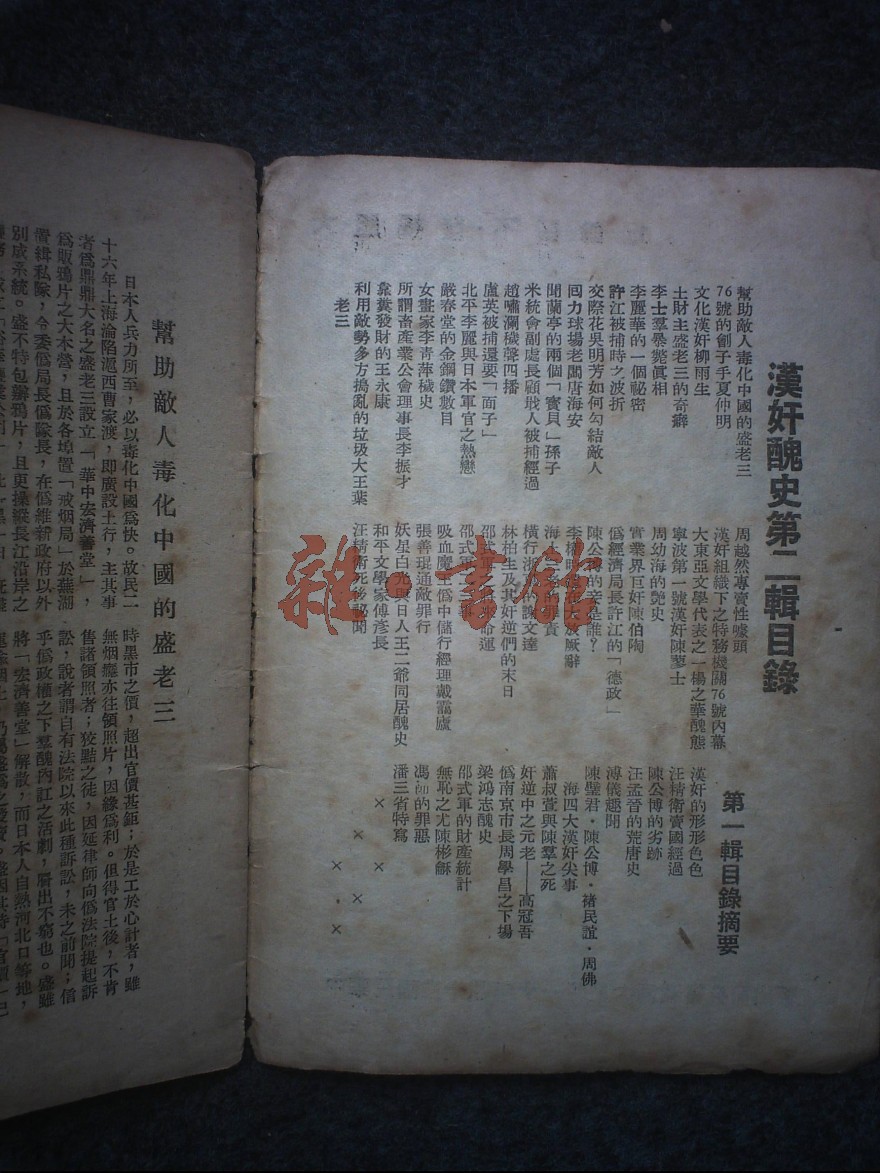 漢奸醜史第二輯目錄
幫助敵人毒化中國的盛老三
76號的劊子手夏仲明
文化漢奸柳雨生
土財主盛老三的奇癖
李士羣暴斃眞相
李麗華的一個祕密
許江被捕時之波折
交際花吳明芳如何勾結敵人
回力球場老闆唐海安
聞蘭亭的兩個「寶貝」孫子
米統會副處長顧戝人被捕經過
趙嘯瀾穢聲四播
盧英被捕還要「面子」
北平李麗與日本軍官之熱戀
嚴春堂的金鋼鑽數目
女畫家李青萍穢史
所謂畜產業公會理事長李振才
靠糞發財的王永康
利用敵勢多方搗亂的垃圾大王葉
老三
周越然專賣性噱頭
漢奸組織下之特務機關76號內幕
大東亞文學代表之一楊之華醜態
寧波第一號漢奸陳蓼士
周幼海的艷史
實業界巨奸陳伯陶
僞經濟局長許江的「德政」
陳公博的妾是誰?
林柏生及其奸逆們的末日
吸血魔王僞中儲行經理戴靄廬
張善琨通敵罪行
妖星白光與日人王二爺同居醜史
和平文學家傅彥長
汪精衛死後祕聞
第一輯目錄摘要
漢奸的形形色色
汪精衛賣國經過
陳公博的劣跡
汪孟晉的荒唐史
溥儀趣聞
陳璧君・陳公博・褚民誼・周佛
海四大漢奸尖事
蕭叔萱與陳羣之死
奸逆中之元老——高冠吾
僞南京市長周學昌之下場
梁鴻志醜史
邵式軍的財產統計
無恥之尤陳彬龢
的罪惡
潘三省特寫
× × × × × ×
幫助敵人毒化中國的盛老三
日本人兵力所至,必以毒化中國爲快。故民二
十六年上海淪陷滬西曹家渡,即廣設土行,主其事
者爲鼎鼎大名之盛老三設立「華中宏濟善堂」,
爲販鴉片之大本營,且於各埠置「戒烟局」於蕪湖
置緝私隊,令委僞局長僞隊長,在僞維新政府以外
別成系統。盛不特包辦鴉片,且更操縱長江沿岸之
時黑市之價,超出官價甚鉅;於是工於心計者,雖
無烟癮亦往領照片,因緣爲利。但得官土後,不肯
售諸領照者;狡黠之徒,因延律師向僞法院提起訴
訟,說者謂自有法院以來此種訴訟,未之前聞;信
乎僞政權之下羣醜內訌之活劇,層出不窮也。盛雖
將「宏濟善堂」解散,而日本人自熱河北口等地,
雜・書館